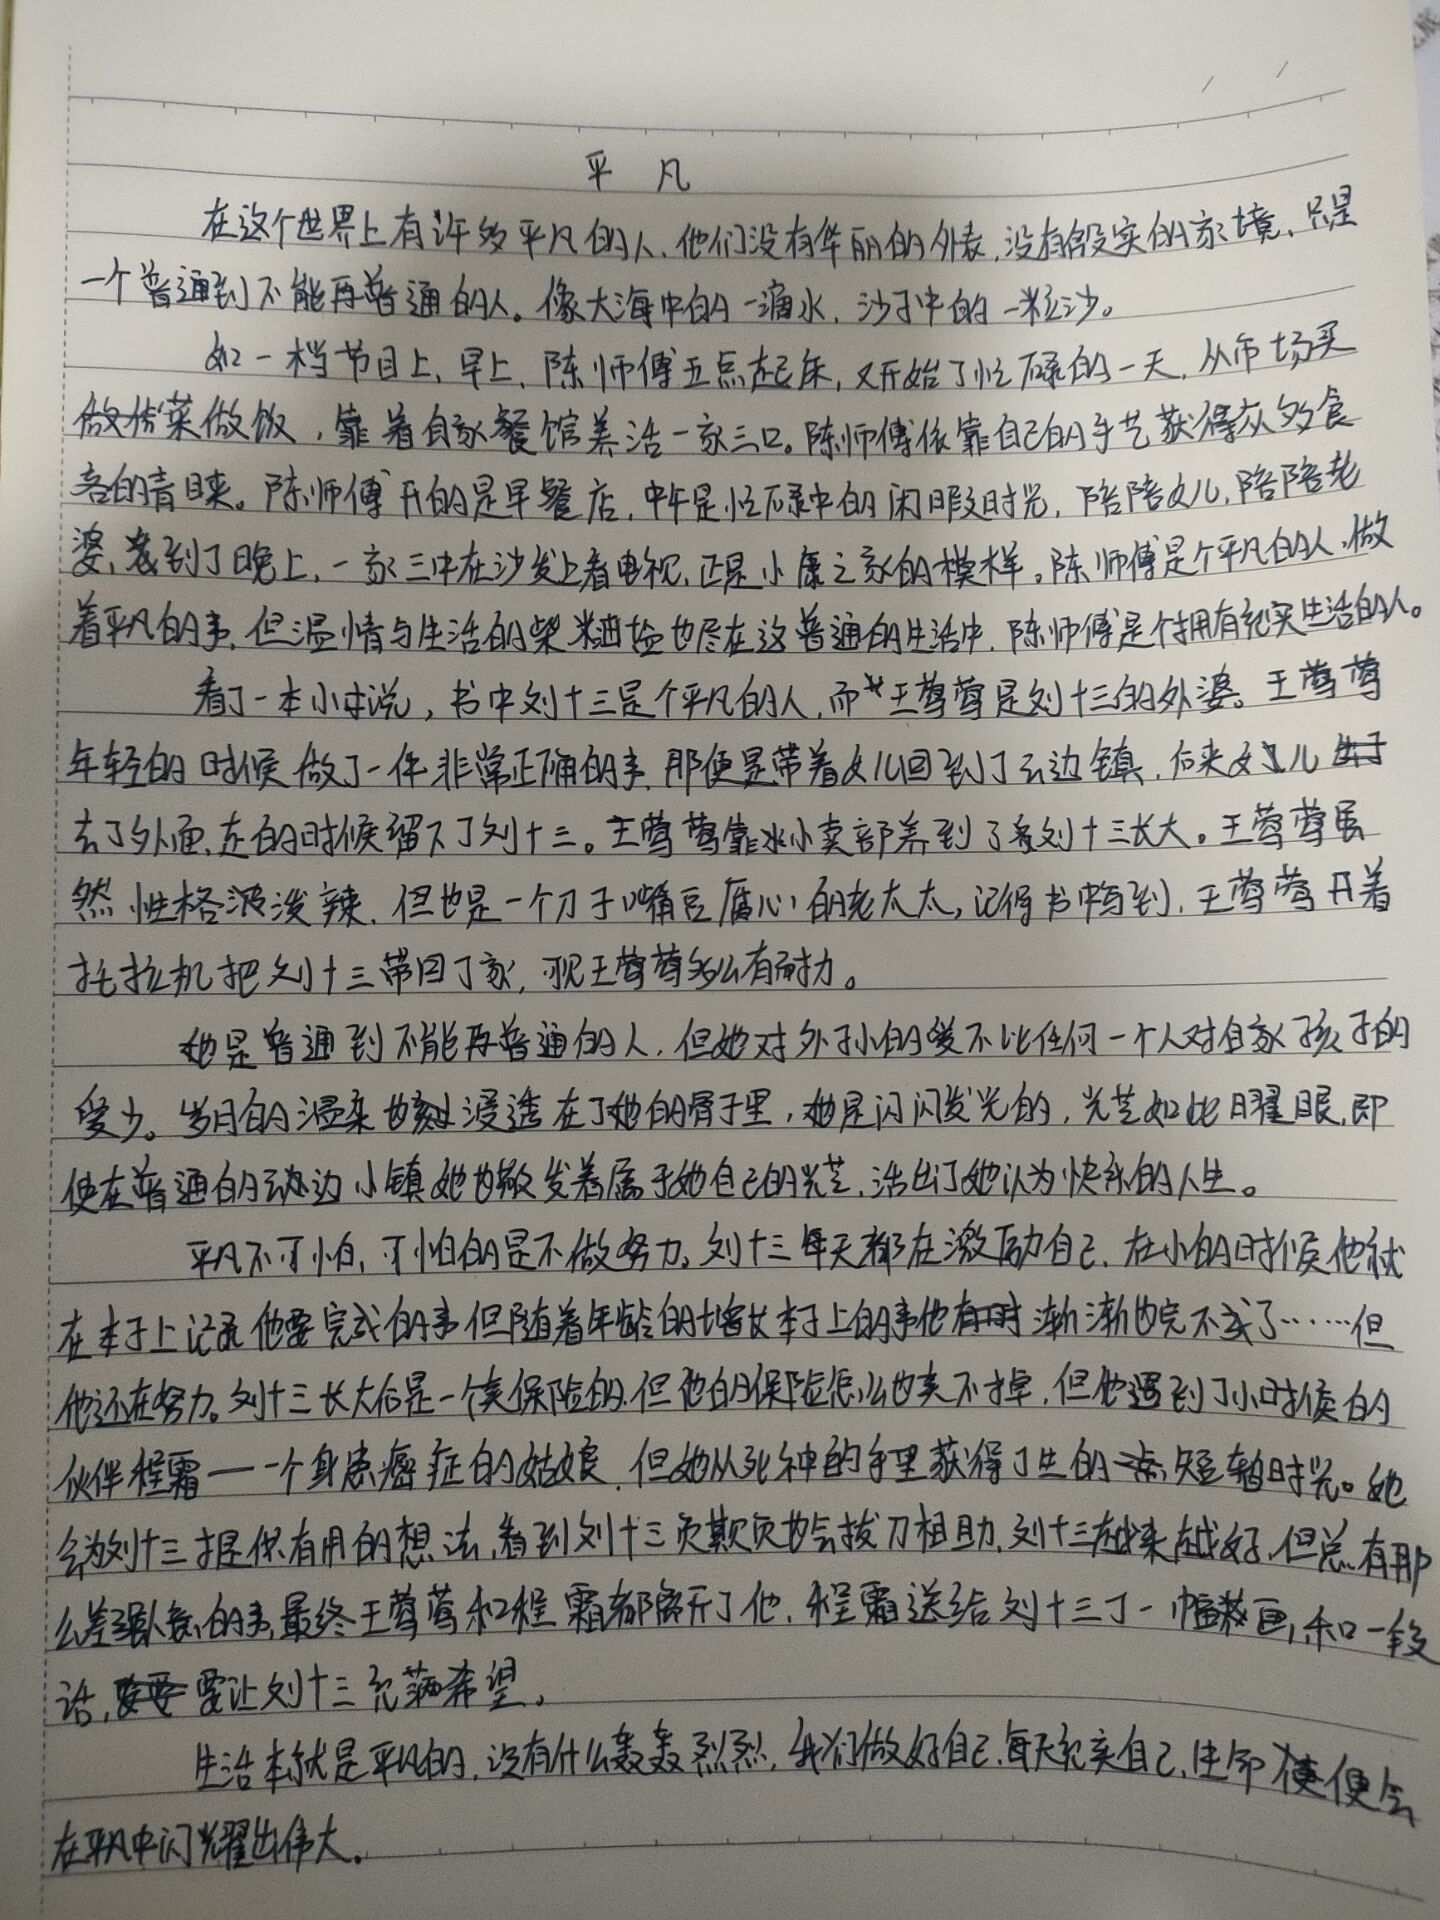 平 凡
在这个世界上有许多平凡的人,他们没有华丽的外表,没有殷实的家境,只是
一个普通到不能再普通的人。像大海中的一滴水,沙子中的一粒沙。
如一档节目上,早上,陈师傅五点起床,又开始了忙碌的一天,从市场买
做菜做饭,靠着自家餐馆养活一家三口。陈师傅依靠自己的手艺获得众多食
客的青睐。陈师傅开的是早餐店,中午是忙碌中的闲暇时光,陪陪女儿,陪陪老
婆,到了晚上,一家三口在沙发上看电视,正是小康之家的模样。陈师傅是个平凡的人,做
着平凡的事,但温情与生活的柴米油盐也尽在这普通的生活中,陈师傅是个拥有充实生活的人。
看了一本小说,书中刘十三是个平凡的人,而王莺莺是刘十三的外婆。王莺莺
年轻的时候做了一件非常正确的事,那便是带着女儿回到了云边镇,后来女儿
去了外面,走的时候留下了刘十三。王莺莺靠小卖部养到了刘十三长大。王莺莺虽
然性格泼辣,但也是一个刀子嘴豆腐心的老太太,记得书中写到,王莺莺开着
拖拉机把刘十三带回了家,可见王莺莺多么有耐力。
她是普通到不能再普通的人,但她对外孙的爱不比任何一个人对自家孩子的
爱少。岁月的温柔也浸透在了她的骨子里,她是闪闪发光的,光芒如此耀眼,即
使在普通的云边小镇她也散发着属于她自己的光芒,活出了她认为快乐的人生。
平凡不可怕,可怕的是不做努力。刘十三每天都在激励自己,在小的时候他就
在本子上记录他要完成的事但随着年龄的增长本子上的事他渐渐也完不成了……但
他还在努力。刘十三长大后是一个卖保险的,但他的保险怎么也卖不掉,但他遇到了小时候的
伙伴程霜——一个身患癌症的姑娘,但她从死神的手里获得了生的短暂时光。她
会为刘十三提供有用的想法,看到刘十三负欺负也会拔刀相助,刘十三越来越好,但总有那
么差强人意的事,最终王莺莺和程霜都离开了他,程霜送给刘十三了一幅画,和一段
话,要让刘十三充满希望。
生活本就是平凡的,没有什么轰轰烈烈,我们做好自己,每天充实自己,便会
在平凡中闪耀出伟大。